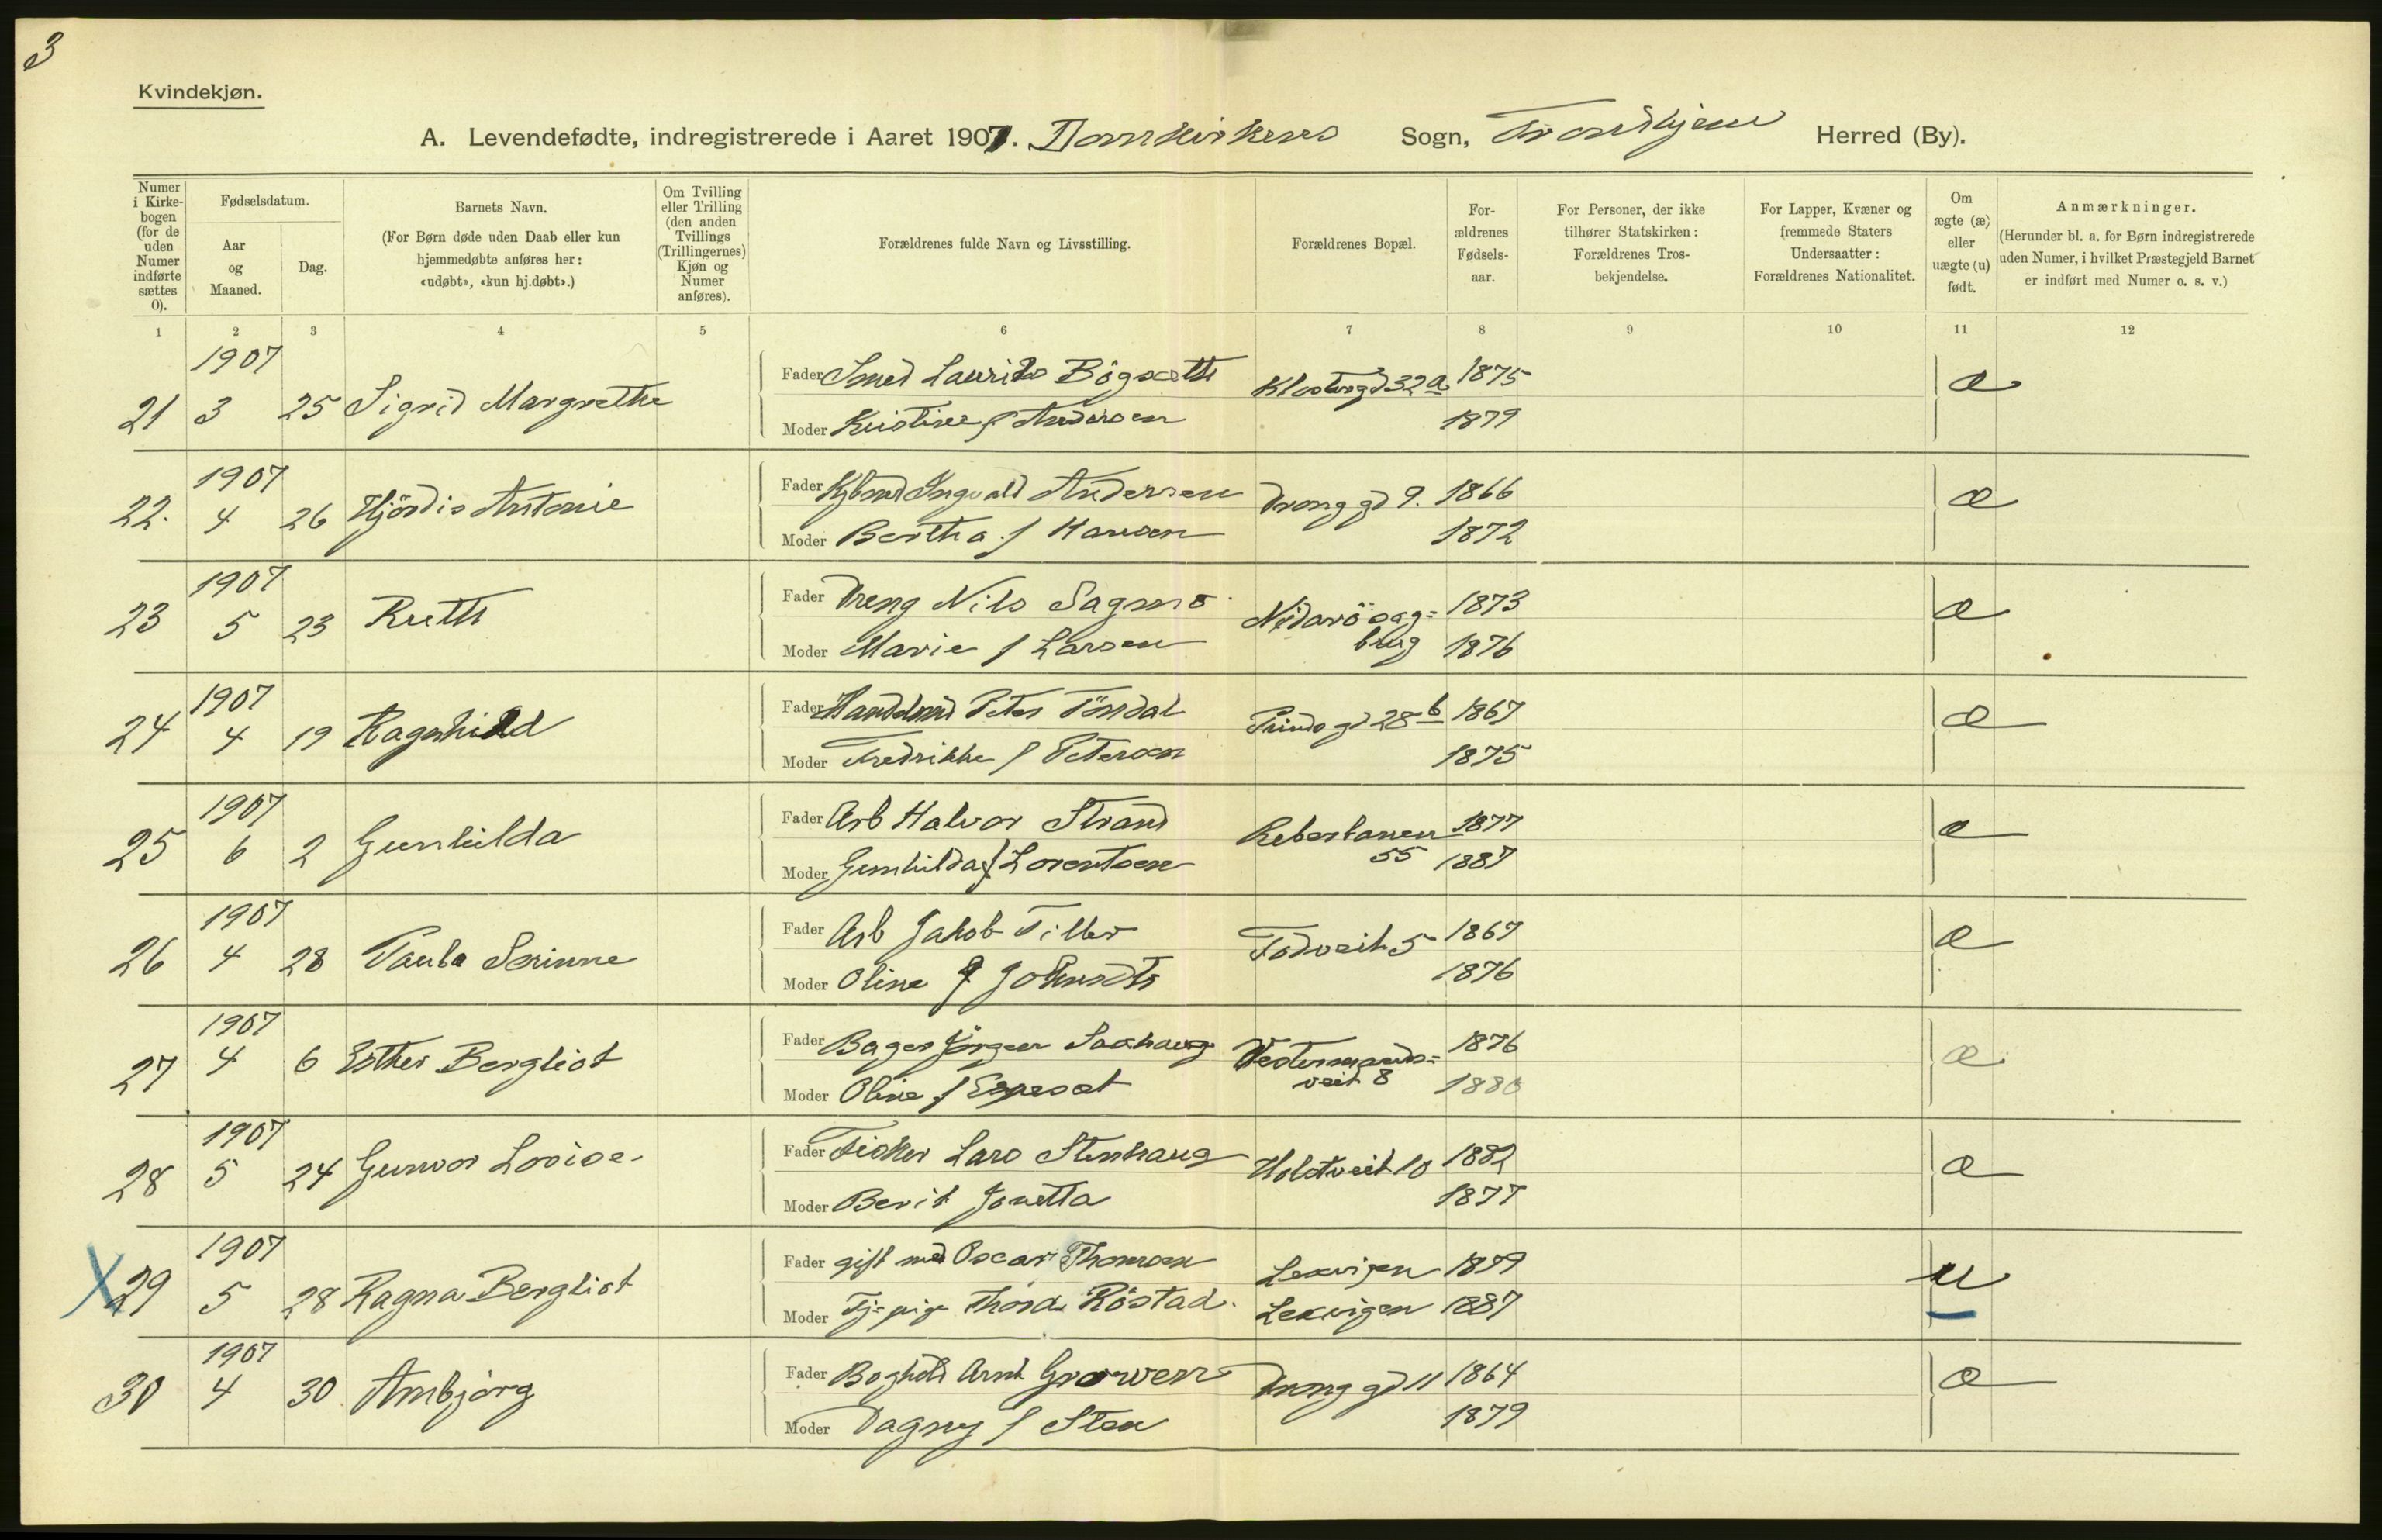 3
Kvindekjøn.
A. Levendefødte, indregistrerede i Aaret 1907. Domkirkens Sogn, Trondhjem Herred (By).
Numer i Kirke- bogen (for de uden Numer indførte sættes 0).
Fødselsdatum.
Aar og Maaned.
Dag.
Barnets Navn.
(For Børn døde uden Daab eller kun hjemmedøbte anføres her: «udøbt», «kun hj.døbt».)
Om Tvilling eller Trilling (den anden Tvillings (Trillingernes) Kjøn og Numer anføres).
Forældrenes fulde Navn og Livsstilling.
Forældrenes Bopæl.
For- ældrenes Fødsels- aar.
For Personer, der ikke tilhører Statskirken: Forældrenes Tros- bekjendelse.
For Lapper, Kvæner og fremmede Staters Undersaatter: Forældrenes Nationalitet.
Om ægte (æ) eller uægte (u) født.
Anmærkninger.
(Herunder bl. a. for Børn indregistrerede uden Numer, i hvilket Præstegjeld Barnet er indført med Numer o. s. v.)
1 2 3 4 5 6 7 8 9 10 11 12
1907
21 3 25 Sigrid Margrethe
Fader Smed Laurits Bögseth Klosterg 32a 1875 æ
Moder Kristine f Andersen 1879
1907
22. 4 26 Hjördis Antonie
Fader Kjbmd Ingvald Andersen Drong gd 9. 1866 æ
Moder Bertha f Hansen 1872
1907
23 5 23 Ruth
Fader Dreng Nils Sagmo Nidarö sag= 1873 æ
Moder Marie f Larsen brug 1876
1907
24 4 19 Ragnhild
Fader Handelsmd Peter Töndal Prinds gd 28b 1867 æ
Moder Fredrikke f Petersen 1875
1907
25 6 2 Gunhilda
Fader Arb Halvor Strand Reberbanen 1877 æ
Moder Gunhilda f Lorentsen 55 1887
1907
26 4 28 Paula Serinne
Fader Arb Jakob Tiller 1867 æ
Moder Oline f 1876
1907
27 4 6 Esther Bergliot
Fader Bager Jörgen Saxhaug Vestermands= 1876 æ
Moder Oline f Espeset veit 8 1880
1907
28 5 24 Gunvor Lovise
Fader Fisker Lars Stenhaug Holstveit 10 1882 æ
Moder Berit Jonetta 1877
1907
X 29 5 28 Ragna Bergliot
Fader gift md Oscar Thomsen Lexvigen 1879 u
Moder Tj=pige Thora Röstad. Lexvigen 1887
1907
30 4 30 Ambjörg
Fader Boghold Arnt Grorven Drong gd 11 1864 æ
Moder Dagny f Sten 1879